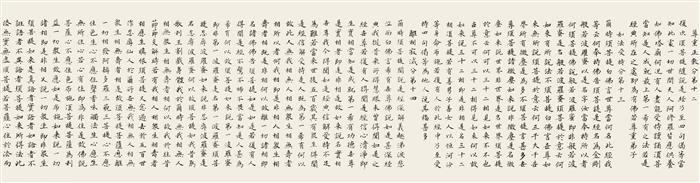 尊重正教分第十二
復次須菩提隨說是經乃至四句偈等當
知此處一切世間天人阿修羅皆應供養
如佛塔廟何況有人盡能受持讀誦須菩提
當知是人成就最上第一希有之法若是
經典所在之處即為有佛若尊重弟子
如法受持分第十三
爾時須菩提白佛言世尊當何名此經我
等云何奉持佛告須菩提是經名為金剛
般若波羅蜜以是名字汝當奉持所以者
何須菩提佛說般若波羅蜜即非般若波
羅蜜是名般若波羅蜜須菩提於意云何
如來有所說法不須菩提白佛言世尊如
來無所說須菩提於意云何三千大千世
界所有微塵是為多不須菩提言甚多世
尊須菩提諸微塵如來說非微塵是名微塵
如來說世界非世界是名世界須菩提
於意云何可以三十二相見如來不不也
世尊不可以三十二相得見如來何以故
如來說三十二相即是非相是名三十二相
須菩提若有善男子善女人以恒河沙
等身命布施若復有人於此經中乃至受
持四句偈等為他人說其福甚多
離相寂滅分第十四
爾時須菩提聞說是經深解義趣涕淚悲
泣而白佛言希有世尊佛說如是甚深經
典我從昔來所得慧眼未曾得聞如是之
經世尊若復有人得聞是經信心清淨即
生實相當知是人成就第一希有功德世尊
是實相者即是非相是故如來說名實相
世尊我今得聞如是經典信解受持不足
為難若當來世後五百歲其有眾生得聞
是經信解受持是人即為第一希有何以
故此人無我相無人相無眾生相無壽者相
所以者何我相即是非相人相眾生相
壽者相即是非相何以故離一切諸相即
名諸佛佛告須菩提如是如是若復有人
得聞是經不驚不怖不畏當知是人甚為
希有何以故須菩提如來說第一波羅蜜
即非第一波羅蜜是名第一波羅蜜須菩
提忍辱波羅蜜如來說非忍辱波羅蜜是
名忍辱波羅蜜何以故須菩提如我昔為
歌利王割截身體我於爾時無我相無人
相無眾生相無壽者相何以故我於往昔
節節支解時若有我相人相眾生相壽者
相應生瞋恨須菩提又念過去於五百世
作忍辱仙人於爾所世無我相無人相無
眾生相無壽者相是故須菩提菩薩應離
一切相發阿耨多羅三藐三菩提心不應
住色生心不應住聲香味觸法生心應生
無所住心若心有住即為非住是故佛說
菩薩心不應住色布施須菩提菩薩為利
益一切眾生應如是布施如來說一切
諸相即是非相又說一切眾生即非眾生
須菩提如來是真語者實語者如語者不
誑語者不異語者須菩提如來所得法此
法無實無虛須菩提若菩薩心住於法而